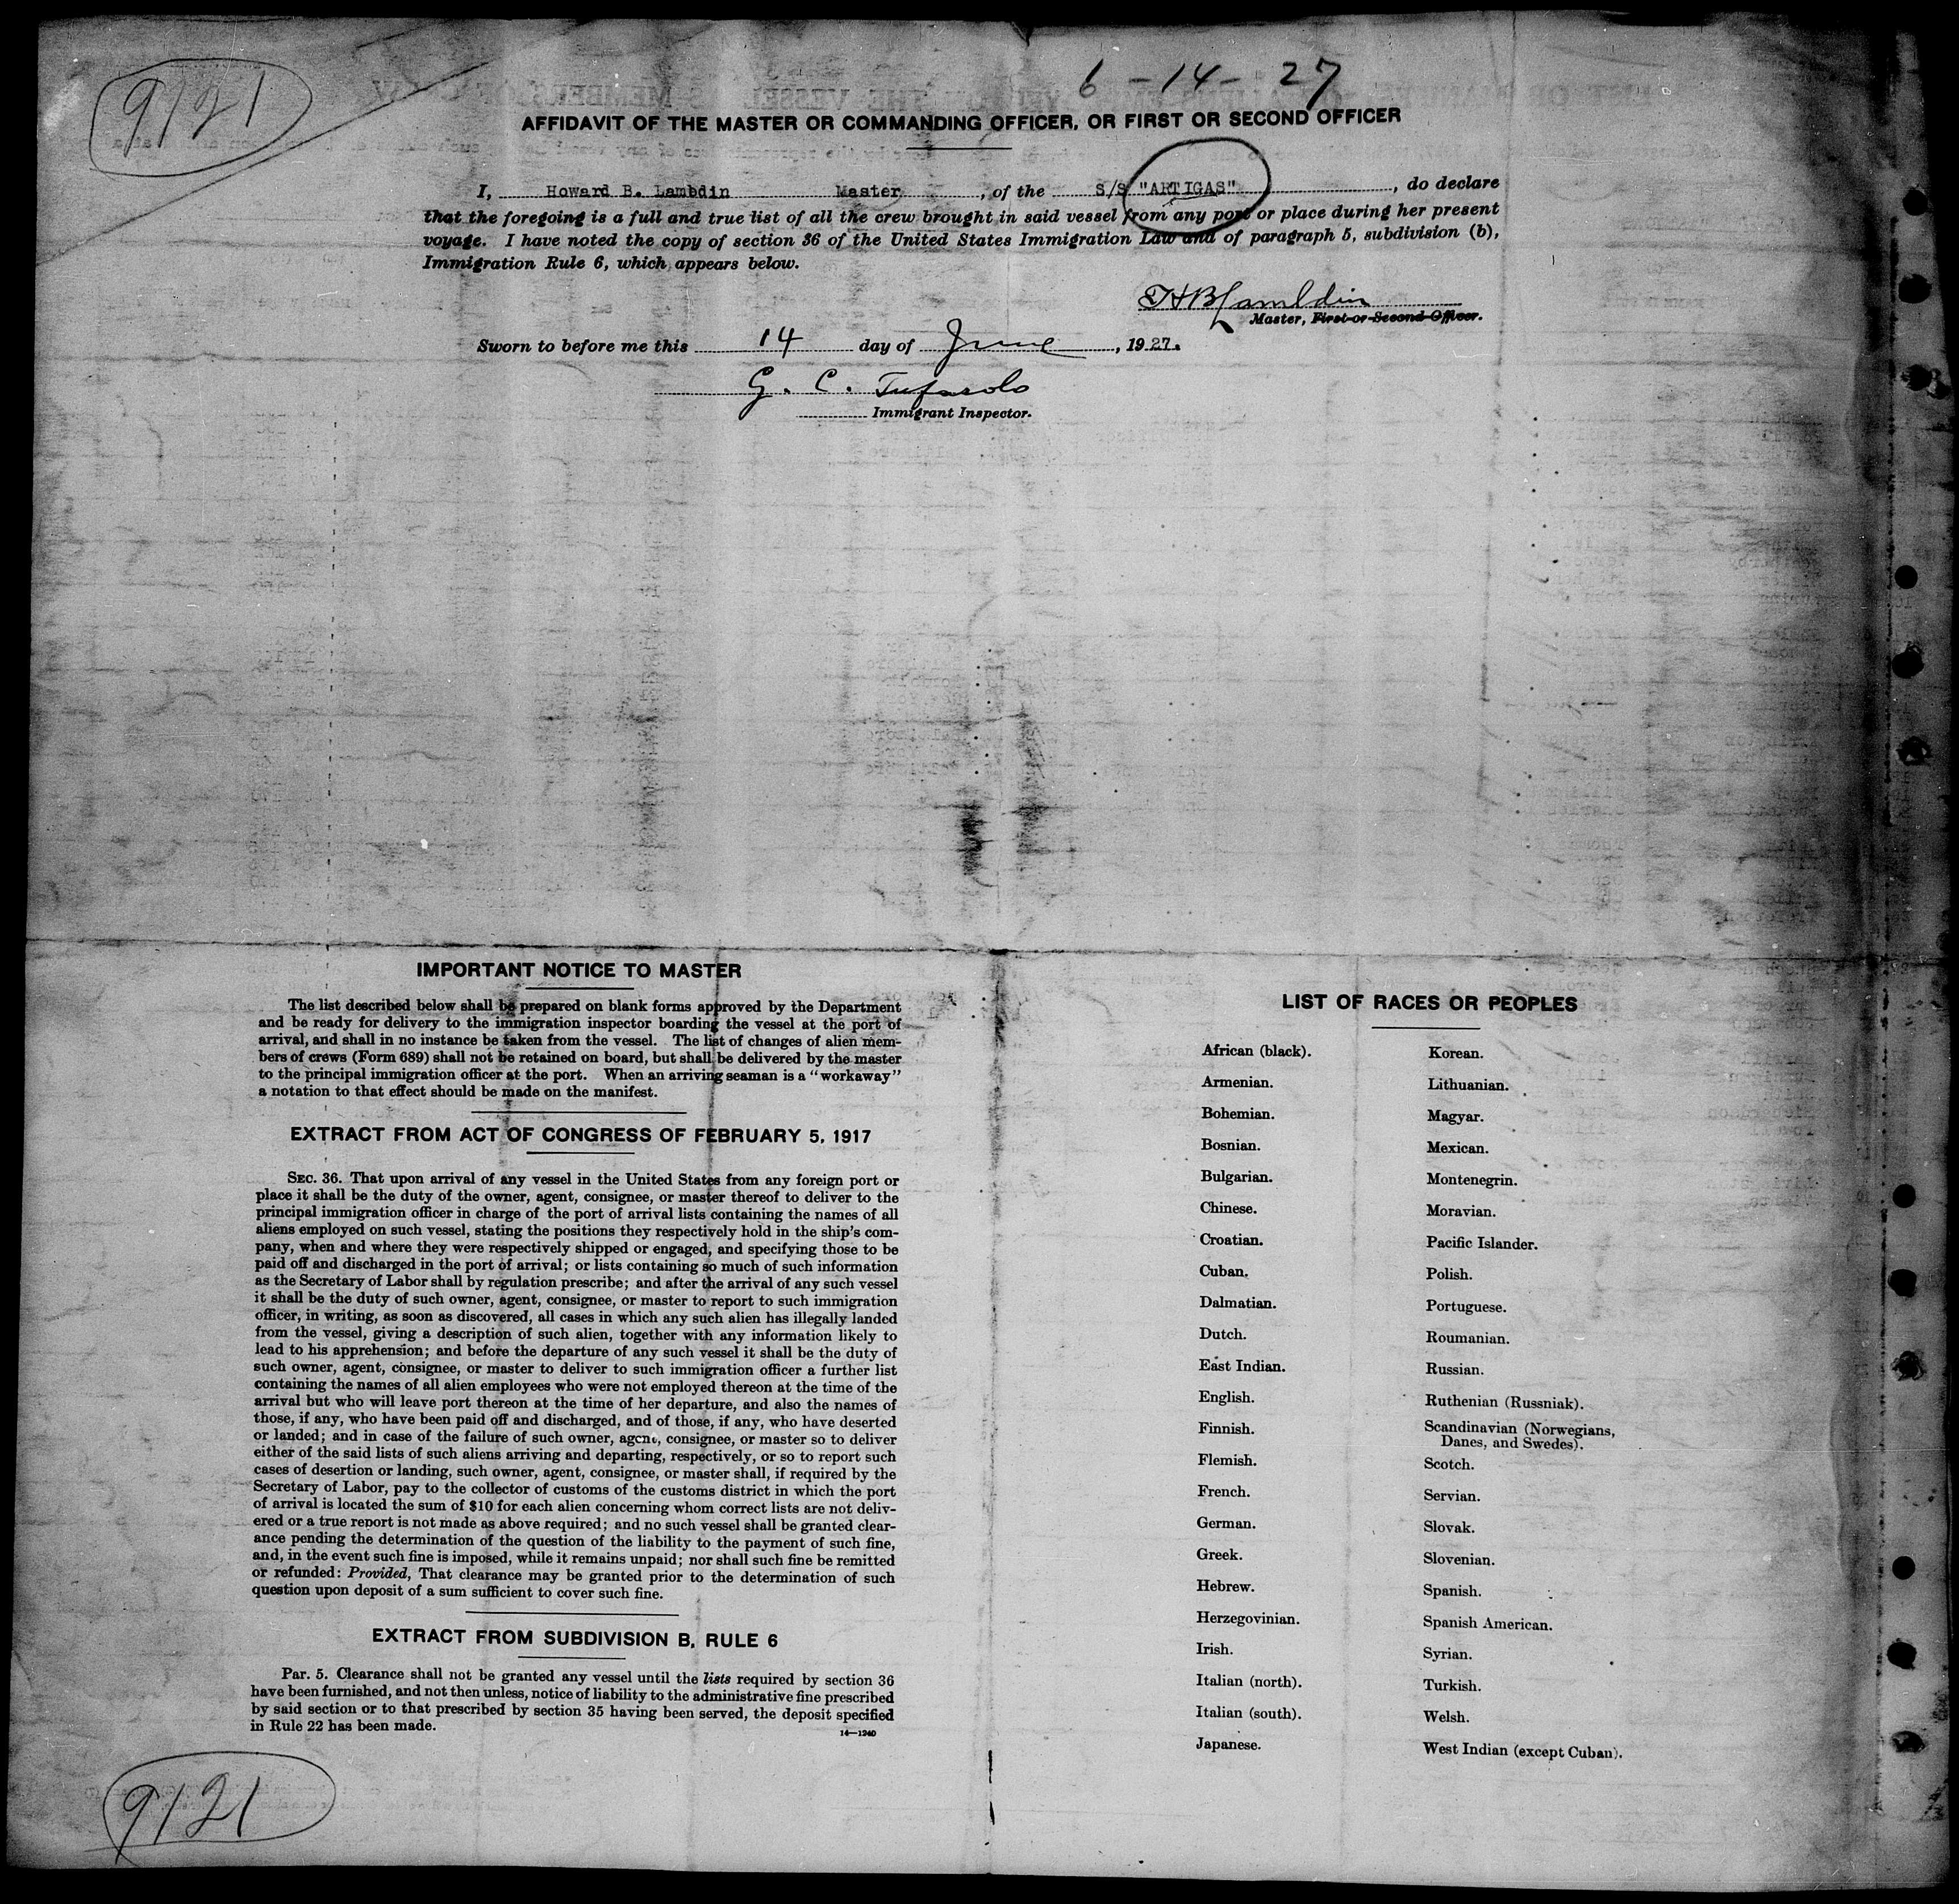 9121
6 - 14 - 27
AFFIDAVIT OF THE MASTER OR COMMANDING OFFICER, OR FIRST OR SECOND OFFICER
I, Howard B. Lambdin Master, of the S/S "ARTIGAS", do declare
that the foregoing is a full and true list of all the crew brought in said vessel from any port or place during her present
voyage. I have noted the copy of section 36 of the United States Immigration Law and of paragraph 5, subdivision (b),
Immigration Rule 6, which appears below.
HBLambdin
Master, First or Second Officer.
Sworn to before me this 14 day of June, 1927.
G. C. Tufarolo
Immigrant Inspector.
IMPORTANT NOTICE TO MASTER
The list described below shall be prepared on blank forms approved by the Department
and be ready for delivery to the immigration inspector boarding the vessel at the port of
arrival, and shall in no instance be taken from the vessel. The list of changes of alien mem-
bers of crews (Form 689) shall not be retained on board, but shall be delivered by the master
to the principal immigration officer at the port. When an arriving seaman is a "workaway"
a notation to that effect should be made on the manifest.
EXTRACT FROM ACT OF CONGRESS OF FEBRUARY 5, 1917
SEC. 36. That upon arrival of any vessel in the United States from any foreign port or
place it shall be the duty of the owner, agent, consignee, or master thereof to deliver to the
principal immigration officer in charge of the port of arrival lists containing the names of all
aliens employed on such vessel, stating the positions they respectively hold in the ship's com-
pany, when and where they were respectively shipped or engaged, and specifying those to be
paid off and discharged in the port of arrival; or lists containing so much of such information
as the Secretary of Labor shall by regulation prescribe; and after the arrival of any such vessel
it shall be the duty of such owner, agent, consignee, or master to report to such immigration
officer, in writing, as soon as discovered, all cases in which any such alien has illegally landed
from the vessel, giving a description of such alien, together with any information likely to
lead to his apprehension; and before the departure of any such vessel it shall be the duty of
such owner, agent, consignee, or master to deliver to such immigration officer a further list
containing the names of all alien employees who were not employed thereon at the time of the
arrival but who will leave port thereon at the time of her departure, and also the names of
those, if any, who have been paid off and discharged, and of those, if any, who have deserted
or landed; and in case of the failure of such owner, agent, consignee, or master so to deliver
either of the said lists of such aliens arriving and departing, respectively, or so to report such
cases of desertion or landing, such owner, agent, consignee, or master shall, if required by the
Secretary of Labor, pay to the collector of customs of the customs district in which the port
of arrival is located the sum of $10 for each alien concerning whom correct lists are not deliv-
ered or a true report is not made as above required; and no such vessel shall be granted clear-
ance pending the determination of the question of the liability to the payment of such fine,
and, in the event such fine is imposed, while it remains unpaid; nor shall such fine be remitted
or refunded: Provided, That clearance may be granted prior to the determination of such
question upon deposit of a sum sufficient to cover such fine.
EXTRACT FROM SUBDIVISION B, RULE 6
Par. 5. Clearance shall not be granted any vessel until the lists required by section 36
have been furnished, and not then unless, notice of liability to the administrative fine prescribed
by said section or to that prescribed by section 35 having been served, the deposit specified
in Rule 22 has been made.
14—1240
9121
LIST OF RACES OR PEOPLES
African (black).
Armenian.
Bohemian.
Bosnian.
Bulgarian.
Chinese.
Croatian.
Cuban.
Dalmatian.
Dutch.
East Indian.
English.
Finnish.
Flemish.
French.
German.
Greek.
Hebrew.
Herzegovinian.
Irish.
Italian (north).
Italian (south).
Japanese.
Korean.
Lithuanian.
Magyar.
Mexican.
Montenegrin.
Moravian.
Pacific Islander.
Polish.
Portuguese.
Roumanian.
Russian.
Ruthenian (Russniak).
Scandinavian (Norwegians,
Danes, and Swedes).
Scotch.
Servian.
Slovak.
Slovenian.
Spanish.
Spanish American.
Syrian.
Turkish.
Welsh.
West Indian (except Cuban).